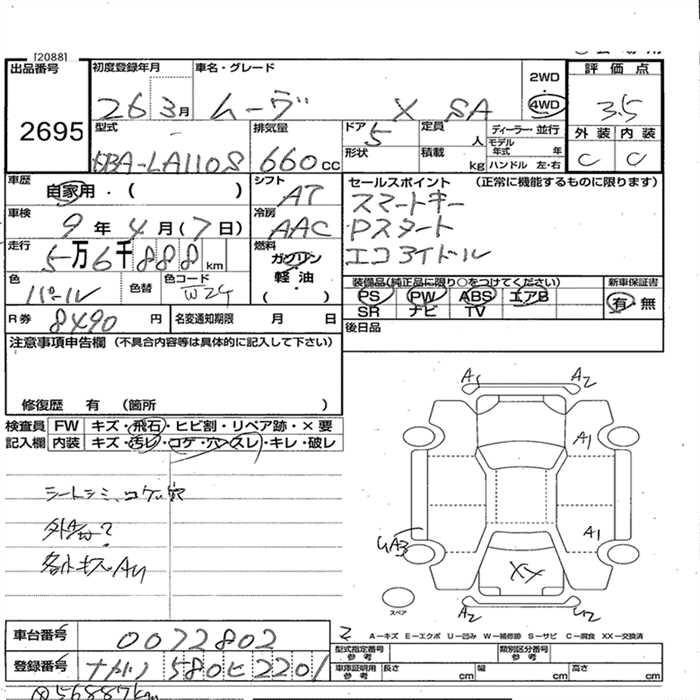 [2088]
出品番号 初度登録年月 車名・グレード 2WD 評価点
2695 26 3月 ムーヴ X SA 4WD 3.5
型式 排気量 ドア 5 定員 人 ディーラー 並行 外装 内装
DBA-LA110S 660cc 形状 積載 kg モデル年式 年 ハンドル 左・右 C C
車歴 自家用・( ) シフト AT セールスポイント (正常に機能するものに限ります)
車検 9年4月(7日) 冷房 AAC スマートキー
Pスタート
走行 5万6千888km 燃料 ガソリン 軽油 ( ) エコアイドル
色 パール 色替 色コード W24 装備品(純正品に限り○をつけてください) 新車保証書
PS PW ABS エアB 有・無
SR ナビ TV
R券 8490円 名変通知期限 月 日 後日品
注意事項申告欄 (不具合内容等は具体的に記入して下さい)
修復歴 有 (箇所 )
検査員 FW キズ・飛石・ヒビ割・リペア跡・×要
記入欄 内装 キズ・汚レ・コゲ・穴・スレ・キレ・破レ
シートシミ、コゲ穴
A1 A2
A1
A1
XX
A2
スペア
車台番号 0072802
A-キズ E-エクボ U-凹み W-補修跡 S-サビ C-腐食 XX-交換済
型式指定番号 参考 類別区分番号 参考
登録番号 580ヒ2201
車庫証明用 参考 長さ cm 幅 cm 高さ cm
56887km